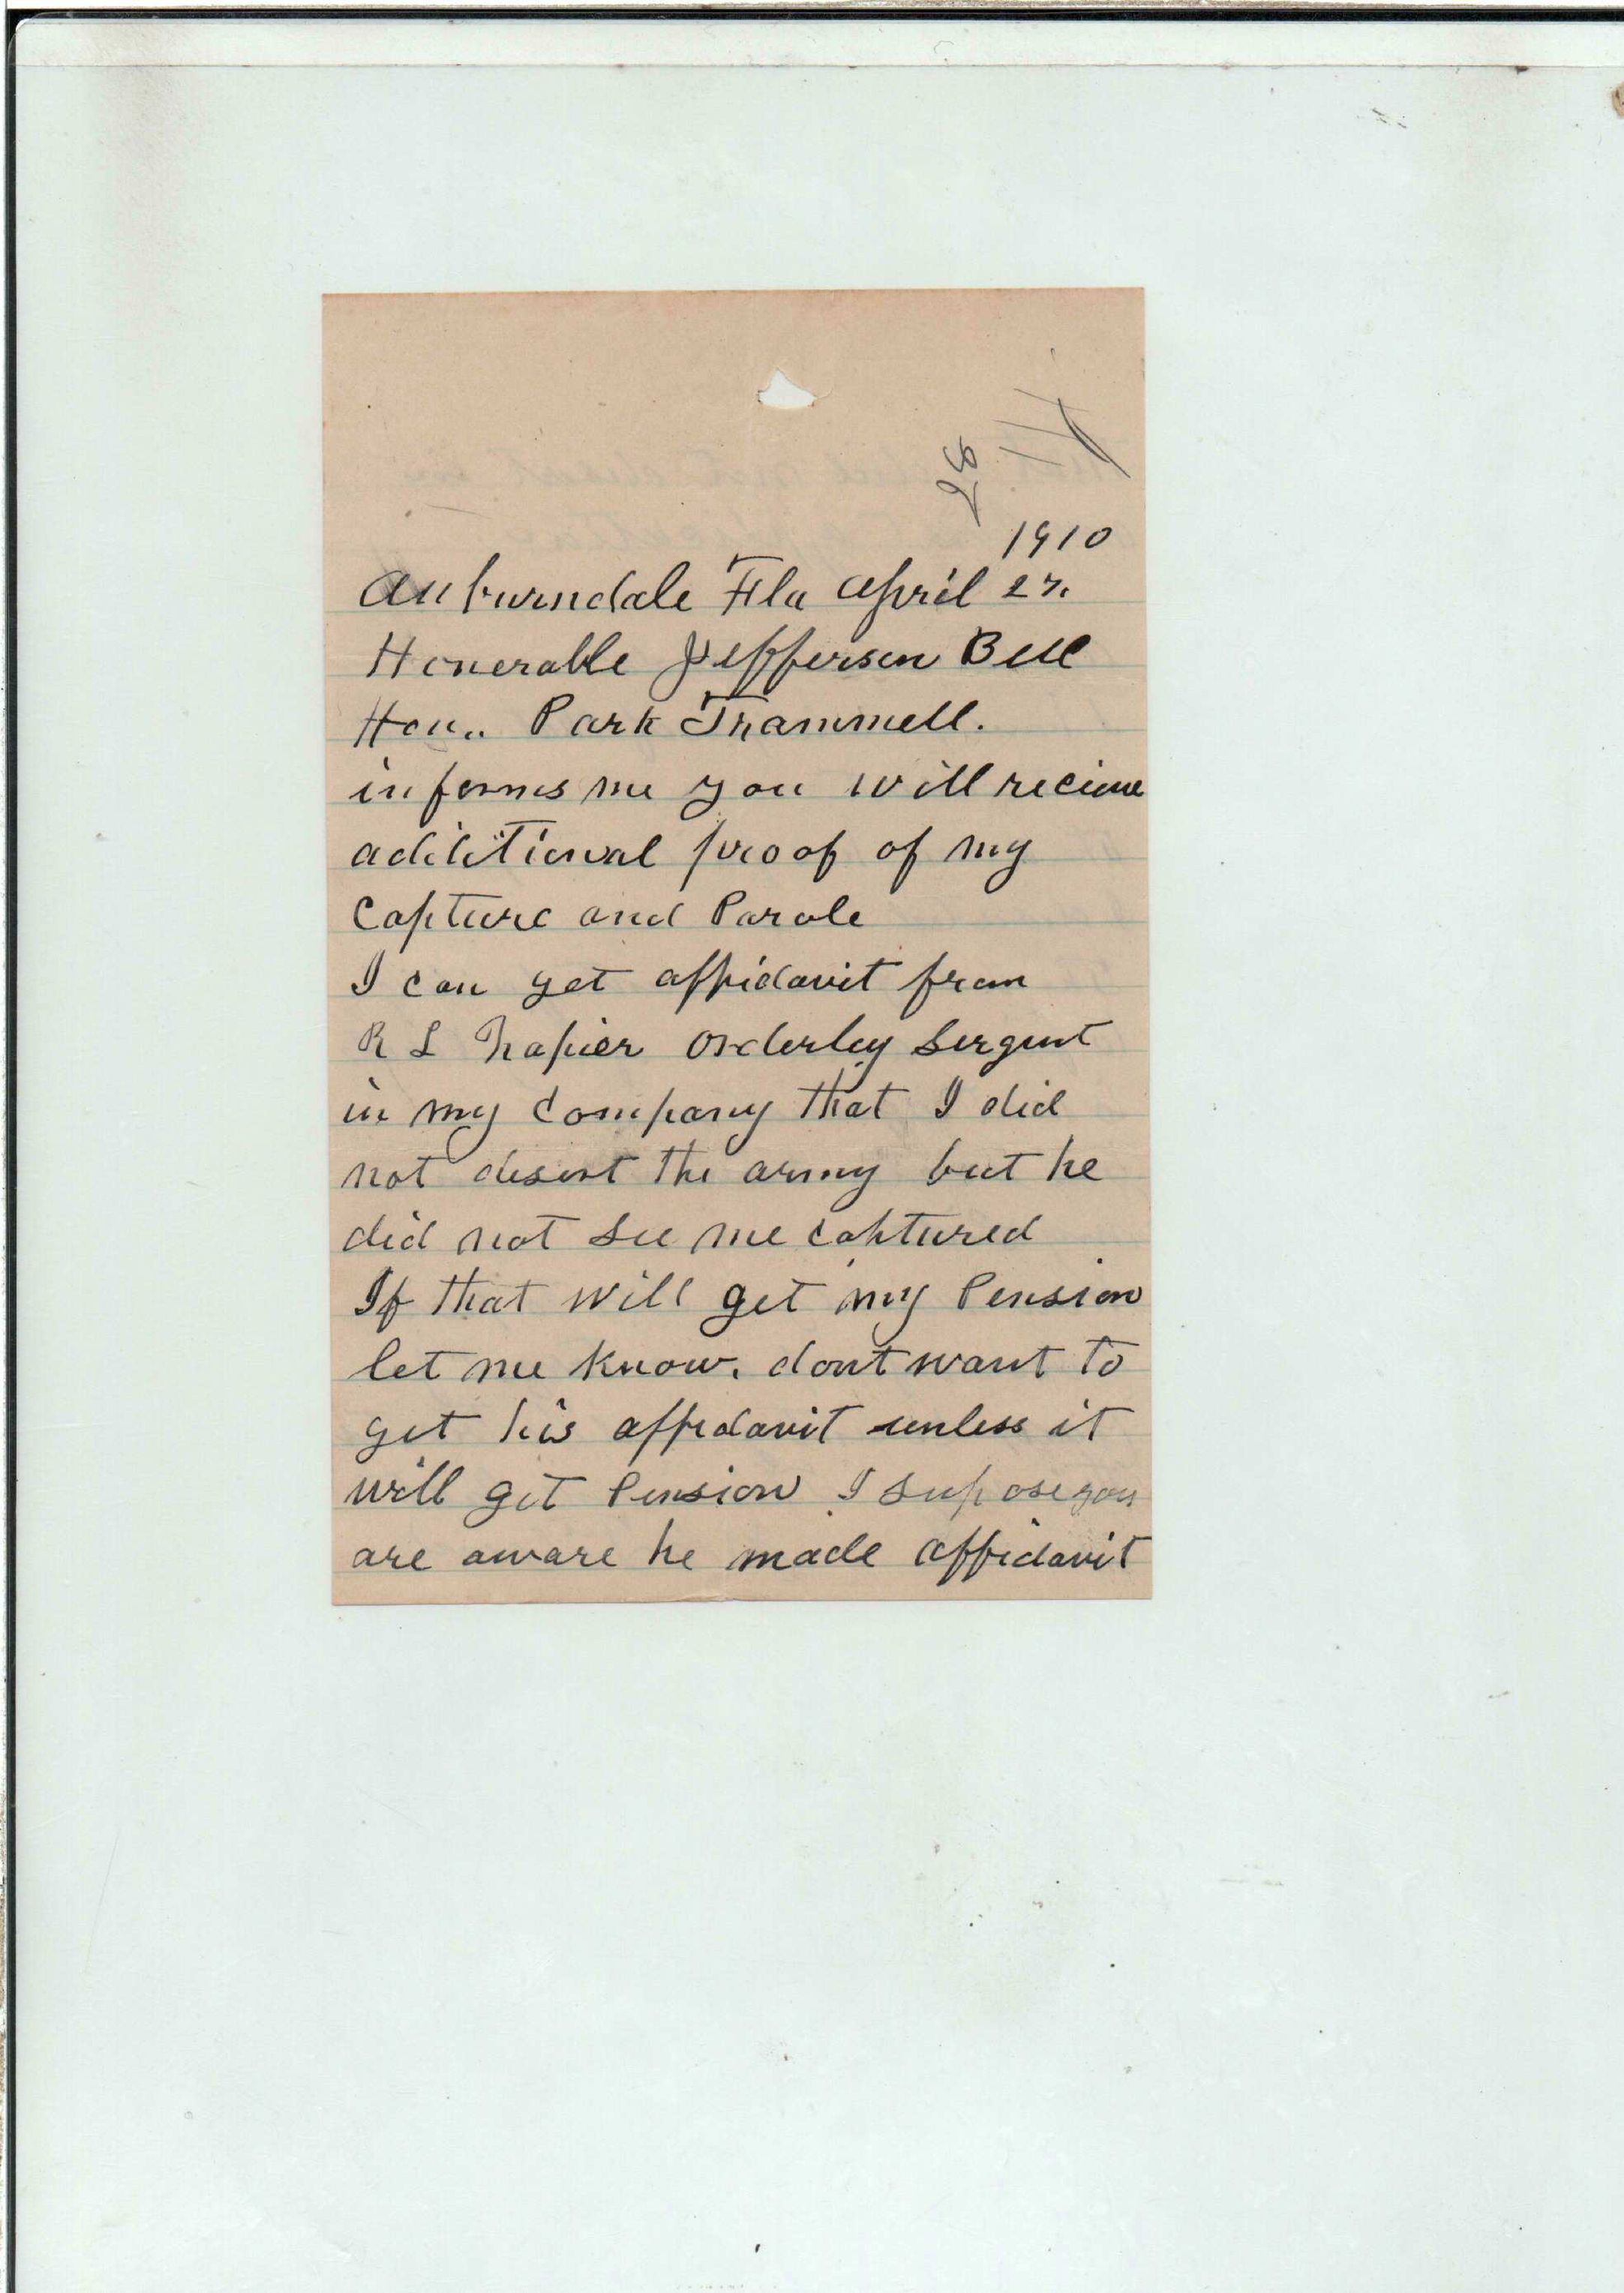 1910
Auburndale Fla April 27.
Honerable Jefferson Bell
Hon.. Park Trammell.
informs me you will recieve
additional proof of my
Capture and Parole
I can get affidavit from
R L Napier Orderley Sergent
in my Company that I did
not desert the army but he
did not see me captured
If that will get my Pension
let me know. dont want to
get his affidavit unless it
will get Pension I supose you
are aware he made affidavit